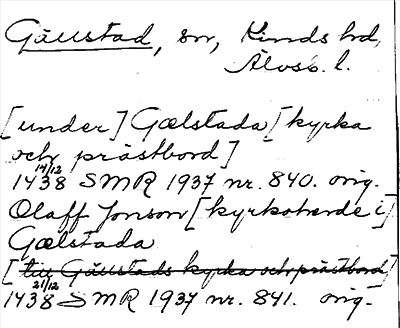 Gällstad, sn, Kinds hd,
Älvsb. l.
[under] Gælstada [kyrka
och prästbord]
14/12
1438 SMR 1937 nr. 840. orig.
Olaff Jonson [kyrkoherde i]
Gælstada
[till Gällstads kyrka och prästbord]
21/12
1438 SMR 1937 nr. 841. orig.